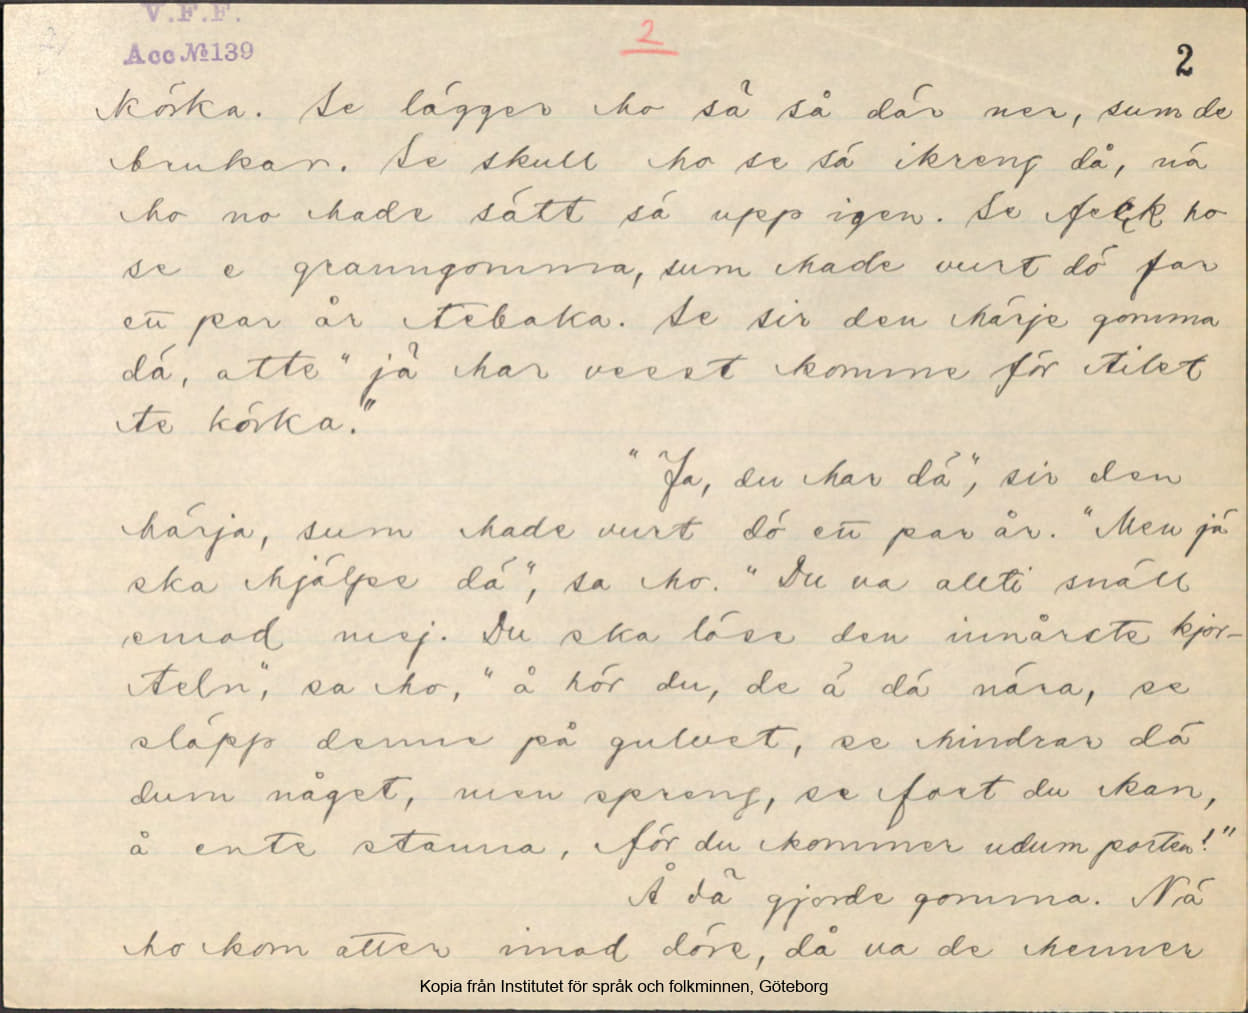 V.F.F.
Acc № 139
2
2
körka. Se lägger ho sä så där ner, sum de
brukar. Se skull ho se sá ikreng då, ná
ho no hade sátt sá upp igen. Se feck ho
se e granngomma, sum hade vurt dö far
en̄ par år tebaka. Se sir den härje gomma
dá, atte "jä har vesst komme för tilet
te körka."
"Ja, du har dá", sir den
härja, sum hade vurt dö en̄ par år. "Men já
ska hjälpe dá", sa ho. "Du va allti snäll
emod mej. Du ska löse den innårste kjor-
teln", sa ho, "å hör du, de á dá nára, se
släpp denne på gulvet, se hindrar dá
dum något, men spreng, se fort du kan,
å ente stanna, för du kommer udum porten!"
Å dä gjorde gomma. Ná
ho kom atter imod döre, då va de henner
Kopia från Institutet för språk och folkminnen, Göteborg